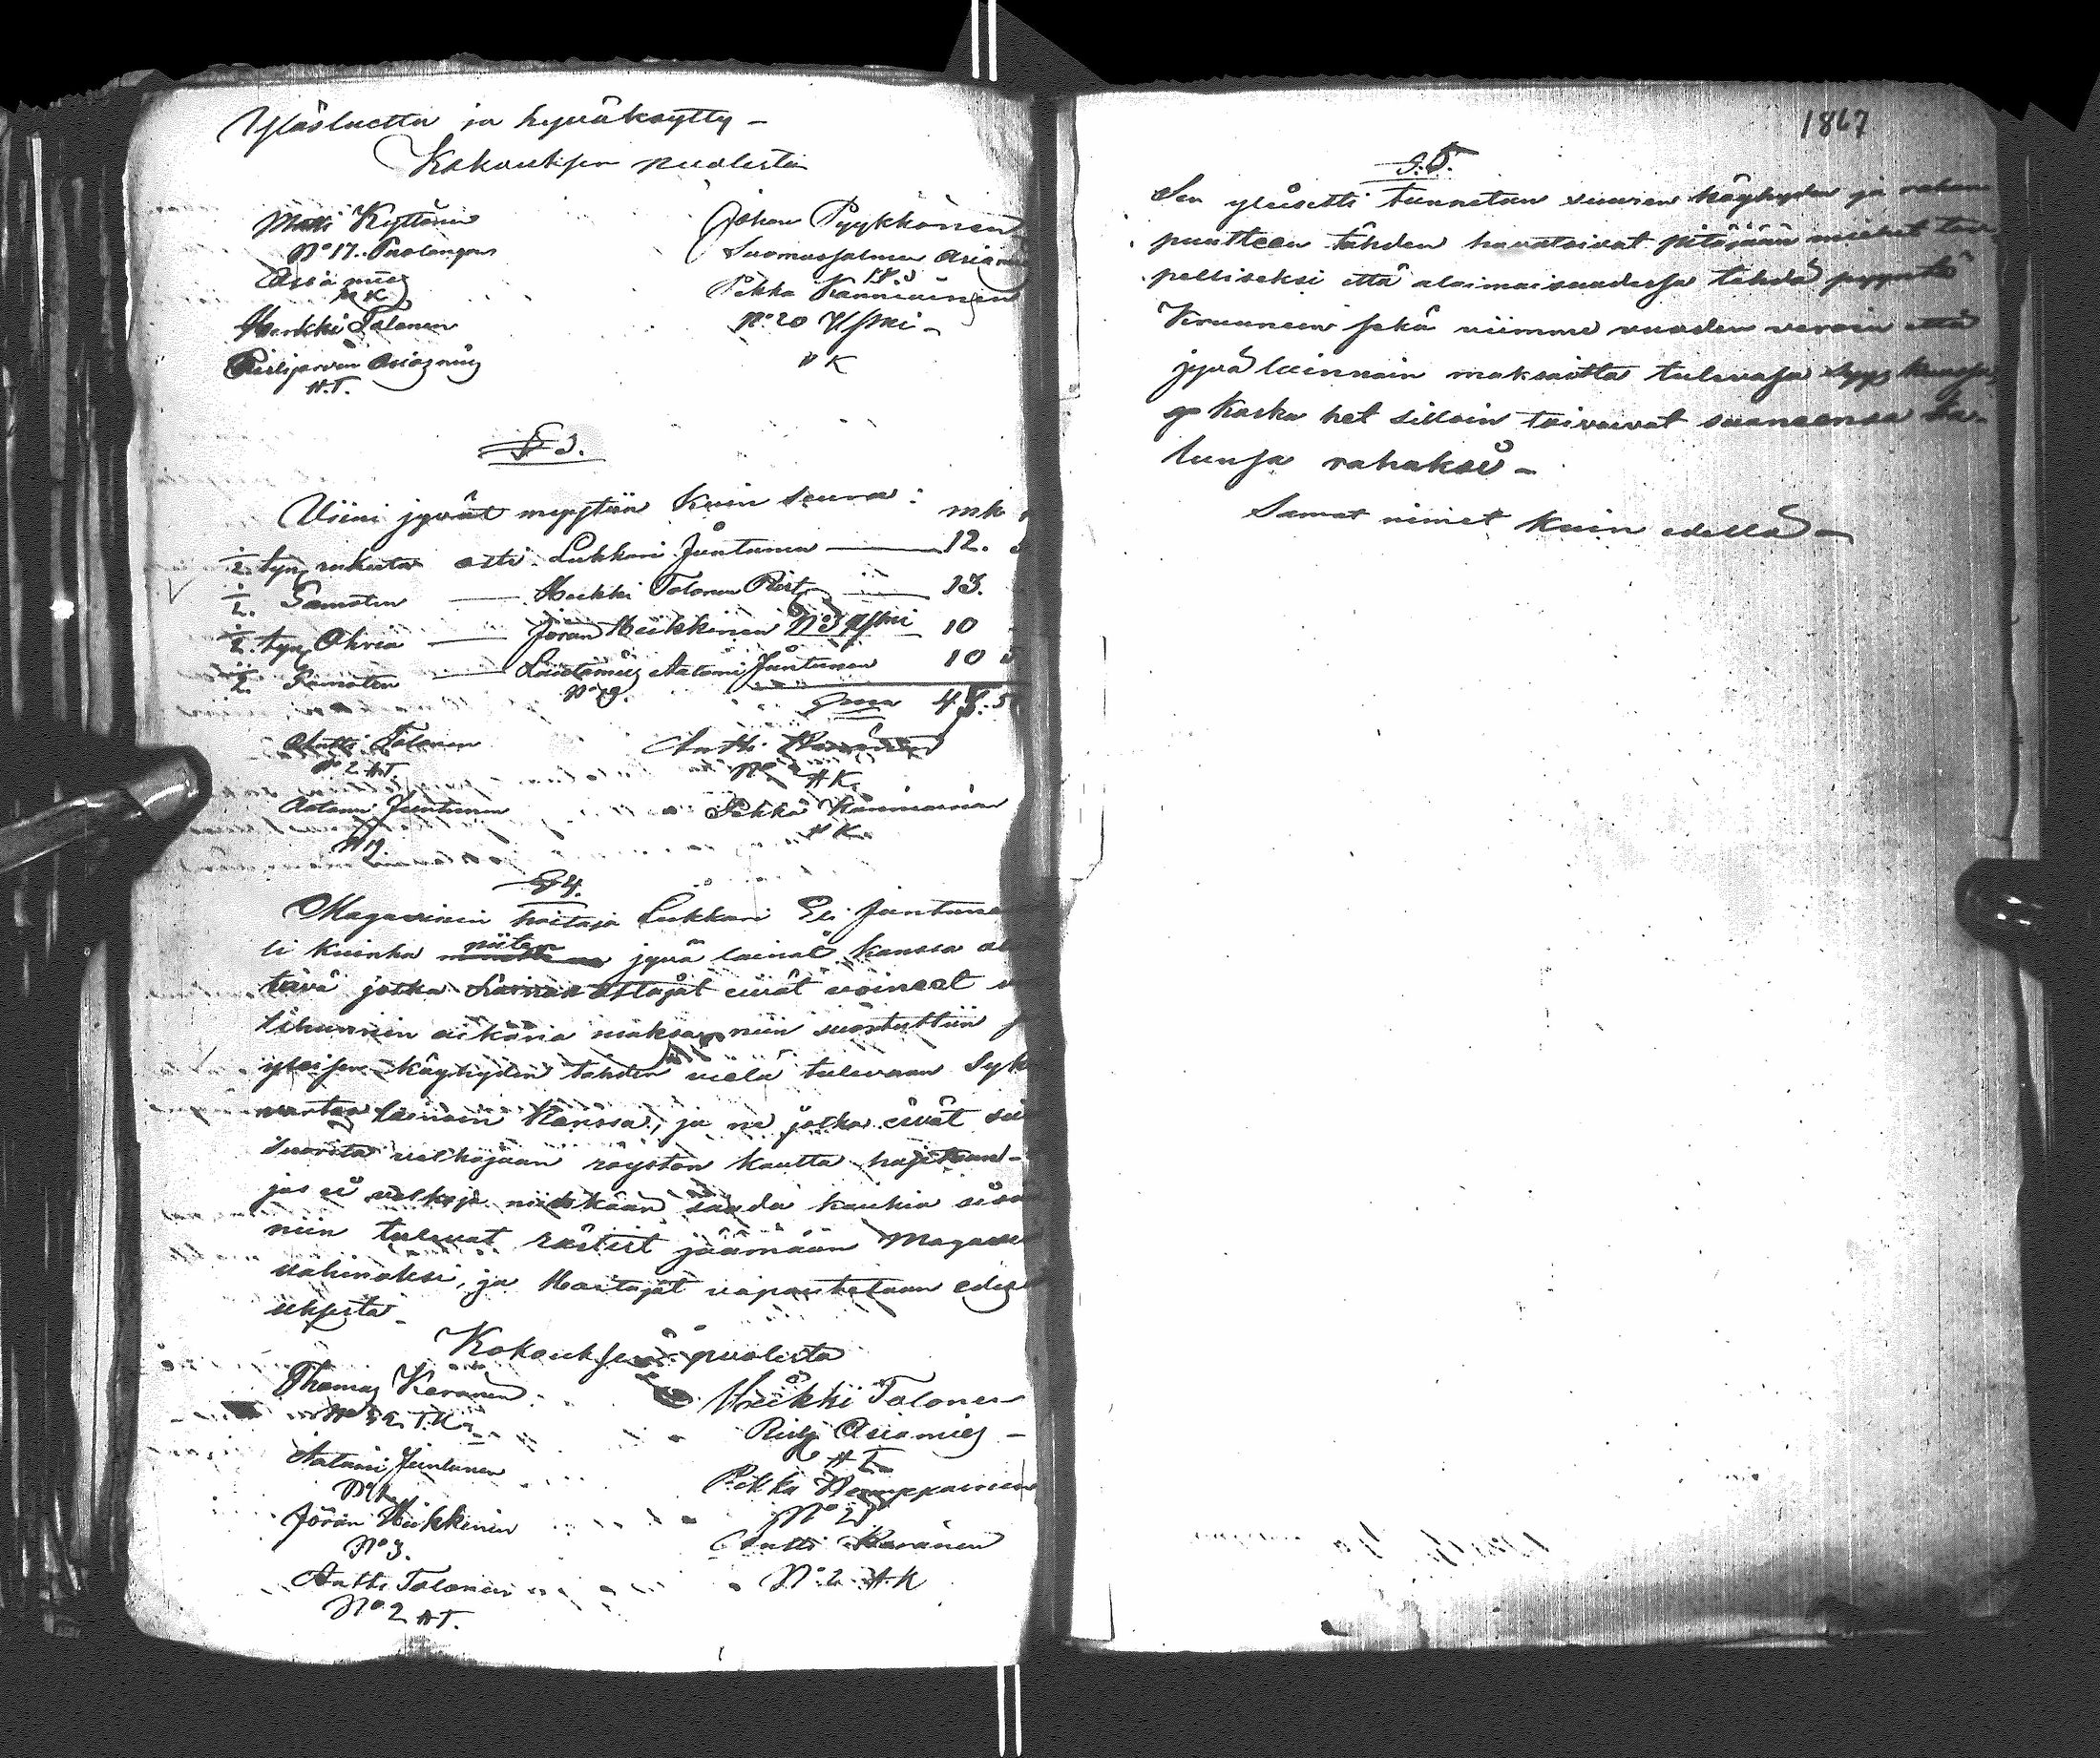 Ylösluettu ja hyväksytty -
Kokouksen puolesta
Matti Kyttönen
No 17. Puolangan
Asia mies
M K
Heikki Tolonen
Ristijärven Asiamies
H.T.
Johan Pyykkönen
Suomussalmen Asiamies
Pekka Kanniainen
No 20
P K
§ 3.
Viini jyvät myytiin kuin seura:
mk
1/2 tyn rukiita osti Lukkari Juntunen — 12.
1/2. Samoten — Heikki Tolonen Rist — 13.
1/2. tyn Ohria — Jöran Heikkinen No 3 10
1/2. Samoten — Lautamies Aatami Juntunen 10
No 19.
Antti Tolonen
No 2 AT.
Aatami Juntunen
No 19
Antti Karänen
No 2
AK.
Pekka Kanniainen
P K.
§ 4.
Magasinin hoitaja Lukkari Juntune
li kuinka niiten jyvä lainat kanssa ol
tava jotka Lainan ottajat eivät voineet
aikana maksa niin suostuttiin
yleisen köyhyden tähden vielä tulevaan Syk
lainoin kanssa, ja ne jotka eivät sii
suorita velkojaan röystön kautta hajetaan -
jos ei velkoja niidekään saada kuihin
niin tulevat rästiit jäämään Magasi
vahinoksi, ja Hoitajat vapautetaan edes
uksesta -
Kokouksen puolesta
Thomas Keränen
No 32 T.K.
Aatami Juntunen
No 19
Jöran Heikkinen
No 3.
Antti Tolonen
No 2 AT.
Heikki Tolonen
Ristj Asiamies -
H T
Pekka Kemppainen
No 25
Antti Karänen
No 2 A.K
1867
§.5.
Sen yleisetti tunnetun suuren köyhyden ja rahan
puutteen tähden havatsivat pitäjään miehet tar-
pelliseksi että alaimaisuudessa tehdä pyyntö
Kruunuun sekä viimme vuoden veroin että
jyvä lainnain maksaitta tulevasa
ga koska het silloin toivovat saaneensa ta-
lunsa rahaksi -
Samat nimet kuin edellä -